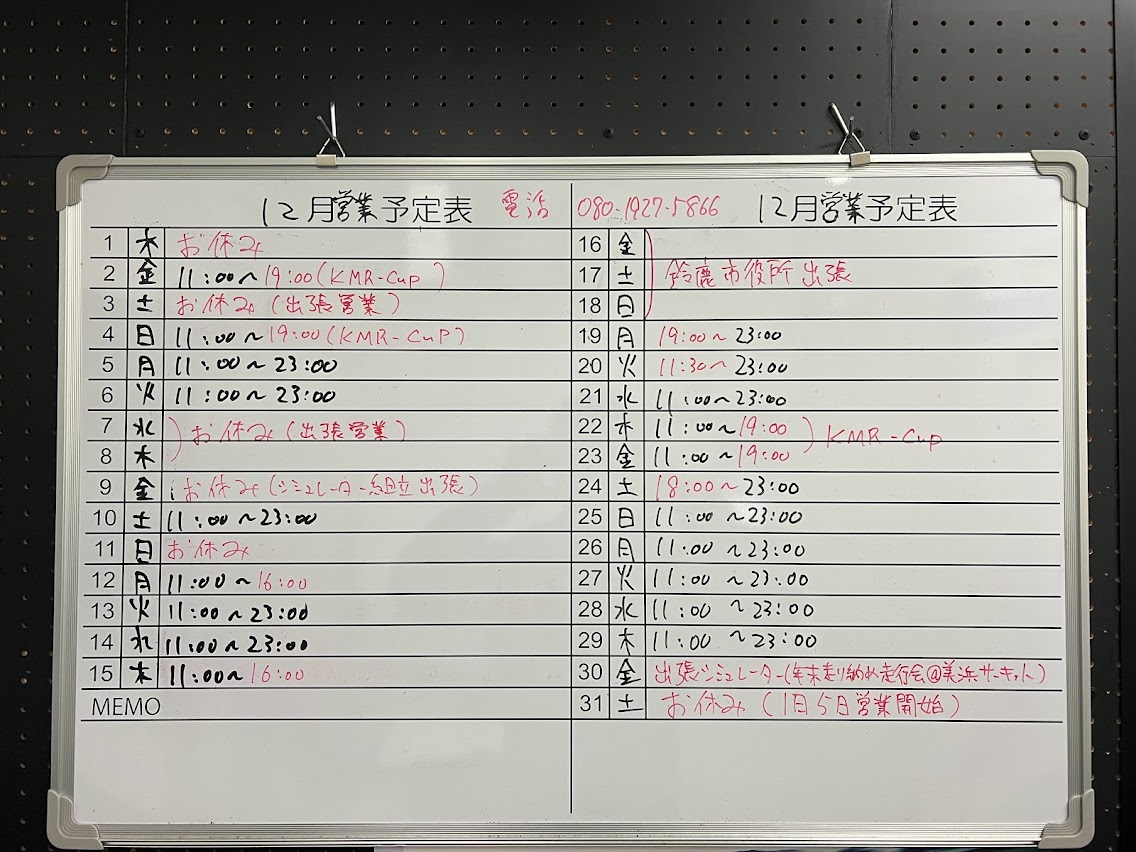 12月営業予定表 電話 080-1927-5866 12月営業予定表
1 木 お休み
2 金 11:00~19:00(KMR-Cup)
3 土 お休み(出張営業)
4 日 11:00~19:00(KMR-CuP)
5 月 11:00~23:00
6 火 11:00~23:00
7 水 お休み(出張営業)
8 木
9 金 お休み(シミュレーター組立出張)
10 土 11:00~23:00
11 日 お休み
12 月 11:00~16:00
13 火 11:00~23:00
14 水 11:00~23:00
15 木 11:00~16:00
MEMO
16 金
17 土 鈴鹿市役所出張
18 日
19 月 19:00~23:00
20 火 11:30~23:00
21 水 11:00~23:00
22 木 11:00~19:00 KMR-Cup
23 金 11:00~19:00
24 土 18:00~23:00
25 日 11:00~23:00
26 月 11:00~23:00
27 火 11:00~23:00
28 水 11:00~23:00
29 木 11:00~23:00
30 金 出張シミュレーター(年末走り納め走行会@美浜サーキット)
31 土 お休み(1月5日営業開始)